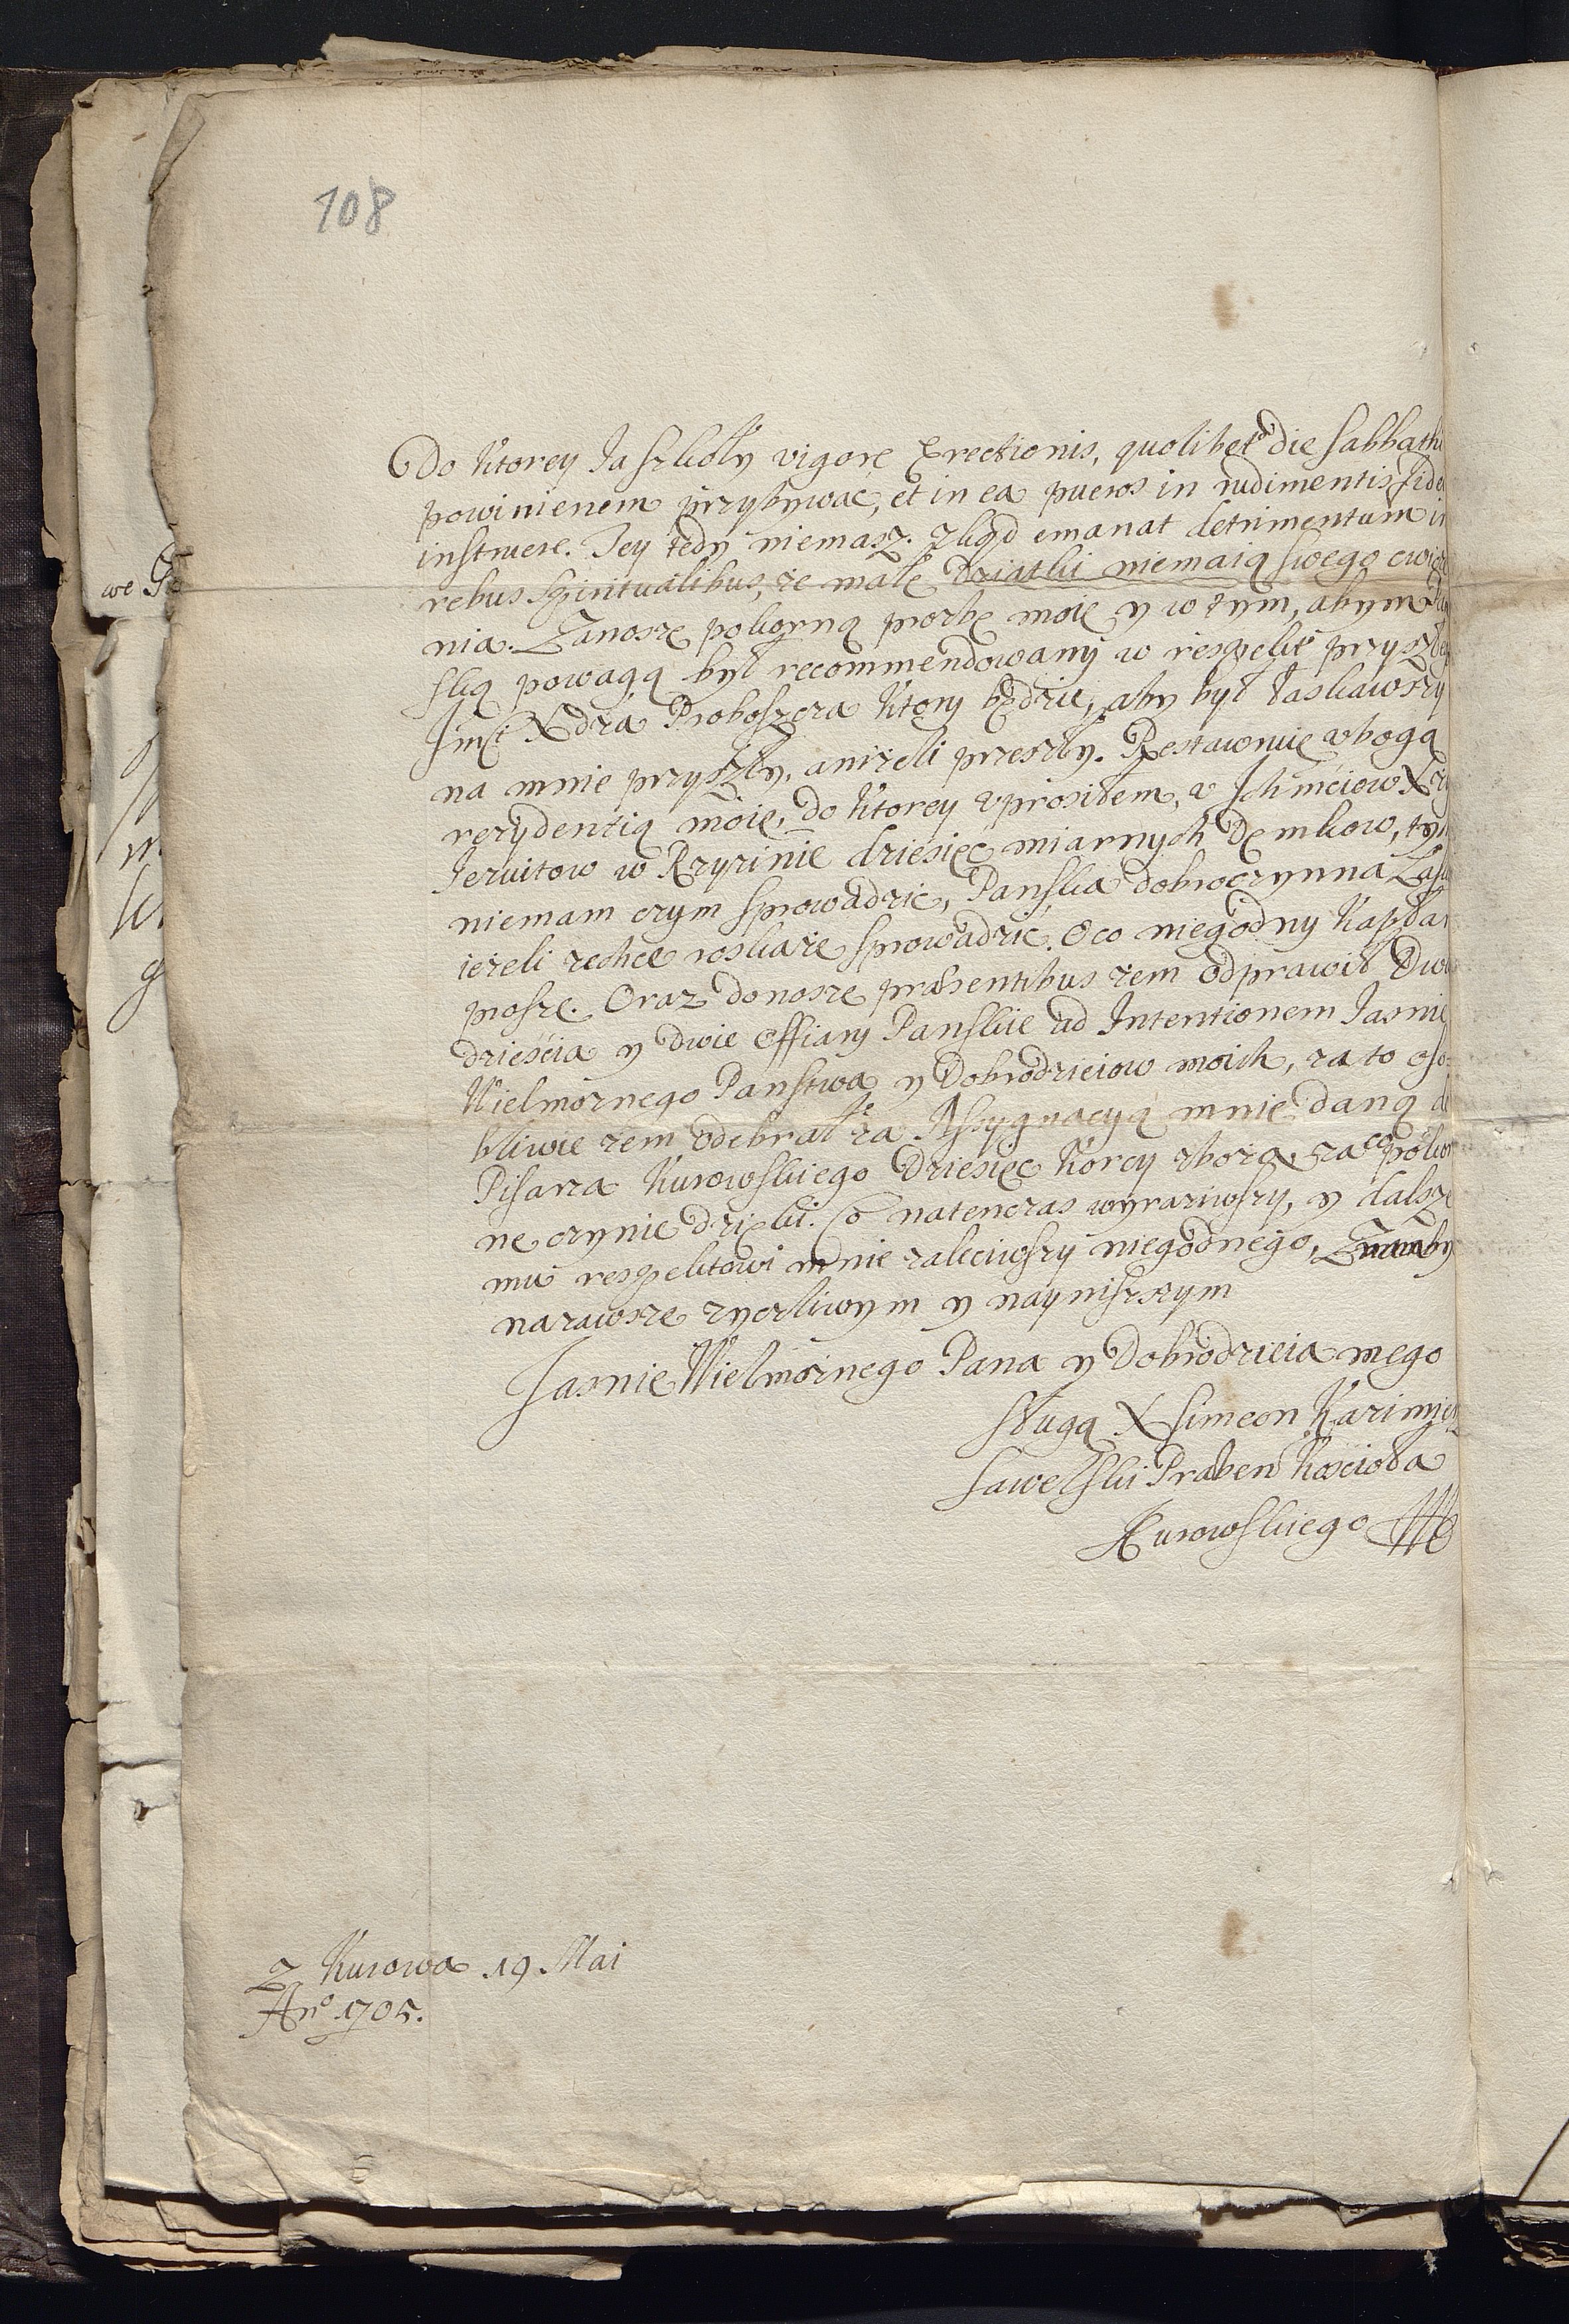 108
Do ktorey Ja szkoły vigore Erectionis, quolibet die Sabbathi
powinienem przybywać, et in ea pueros in rudimentis fidei
instruere. Jey tedy niemasz. zkąd emanat detrimentum in
rebus spiritualibus, że małe Dziatki niemaią swego cwicze
nia. Zanoszę pokorną prozbę moię y w tym, abym Pań
ską powagą był recommendowany w respekt przyszłego
Jmći Xdza Proboszcza ktory będzie, aby był łaskawszy
na mnie przyszły, aniżeli przeszły. Restauruię vbogą
rezydentią moię, do ktorey vprosiłem, v Jch mciow XX
Jezuitow w dziesięc miarnych Dembow, tych
niemam czym sprowadzic, Panska dobroczynna Łaska
ieżeli zechce roskaże sprowadzić. O co niegodny Kapłan
proszę. Oraz donoszę præsentibus żem odprawił Dwa
dzieścia y dwie Offiary Panskie ad Intentionem Jasnie
Wielmożnego Panstwa y Dobrodzieiow moich, za to oso-
bliwie żem odebrał za Assygnacyą mnie daną do
Pisarza Kurowskiego Dziesięc Korcy zboża, za co pokor
ne czynię dzięki. Co natenczas wyraziwszy, y dalsze
mu respektowi mnie zaleciwszy niegodnego,
nazawsze zyczliwym y nayniszszym
Jasnie Wielmożnego Pana y Dobrodzieia mego
sługą X Simeon Kazimierz
Sawelski Præben Koscioła
Kurowskiego
Z Kurowa 19 Mai
Ano 1705.
we